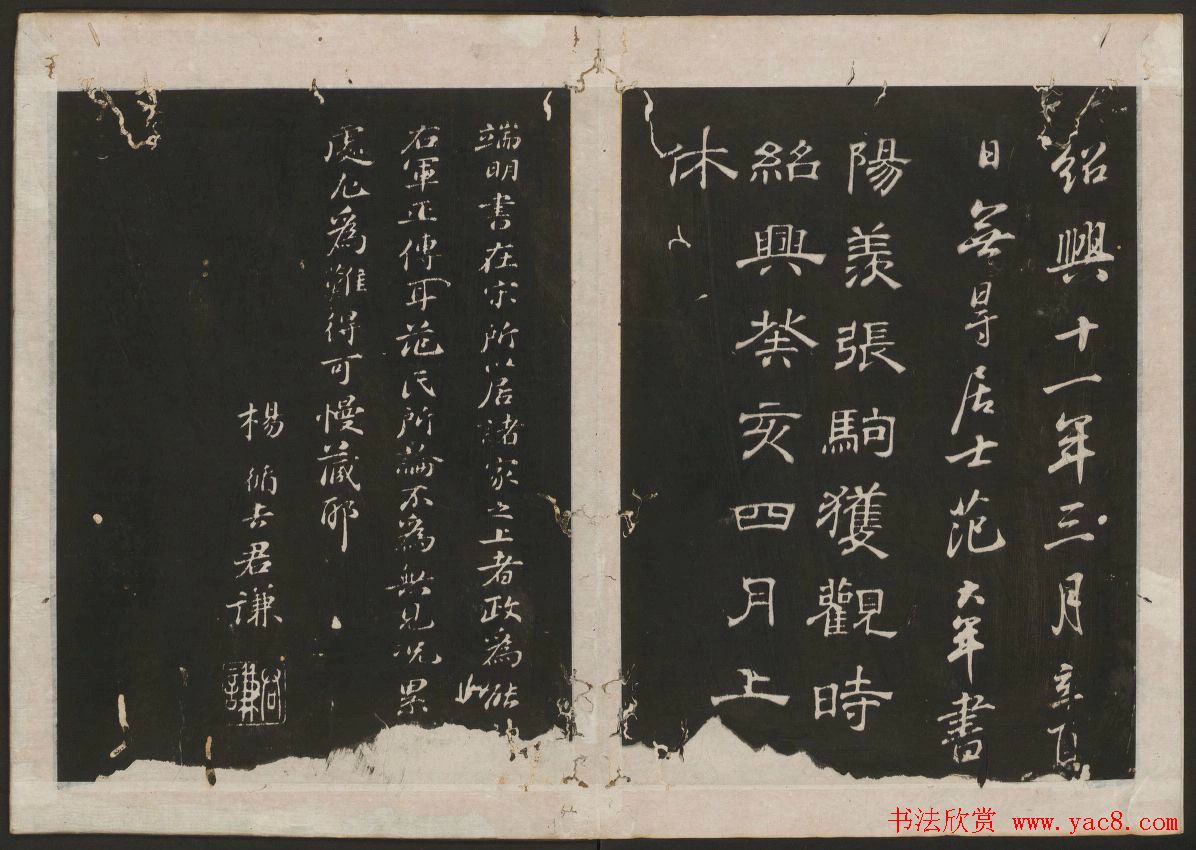 紹興十一年三月辛
日無㝵居士范大年書
陽羨張駒獲觀時
紹興癸亥四月上
休
端明書在宋所以居諸家之上者政為能
右軍正傳耳范氏所論不為無見況累
處尤為難得可慢藏耶
楊循吉君謙
君謙
书法欣赏 www.yac8.com